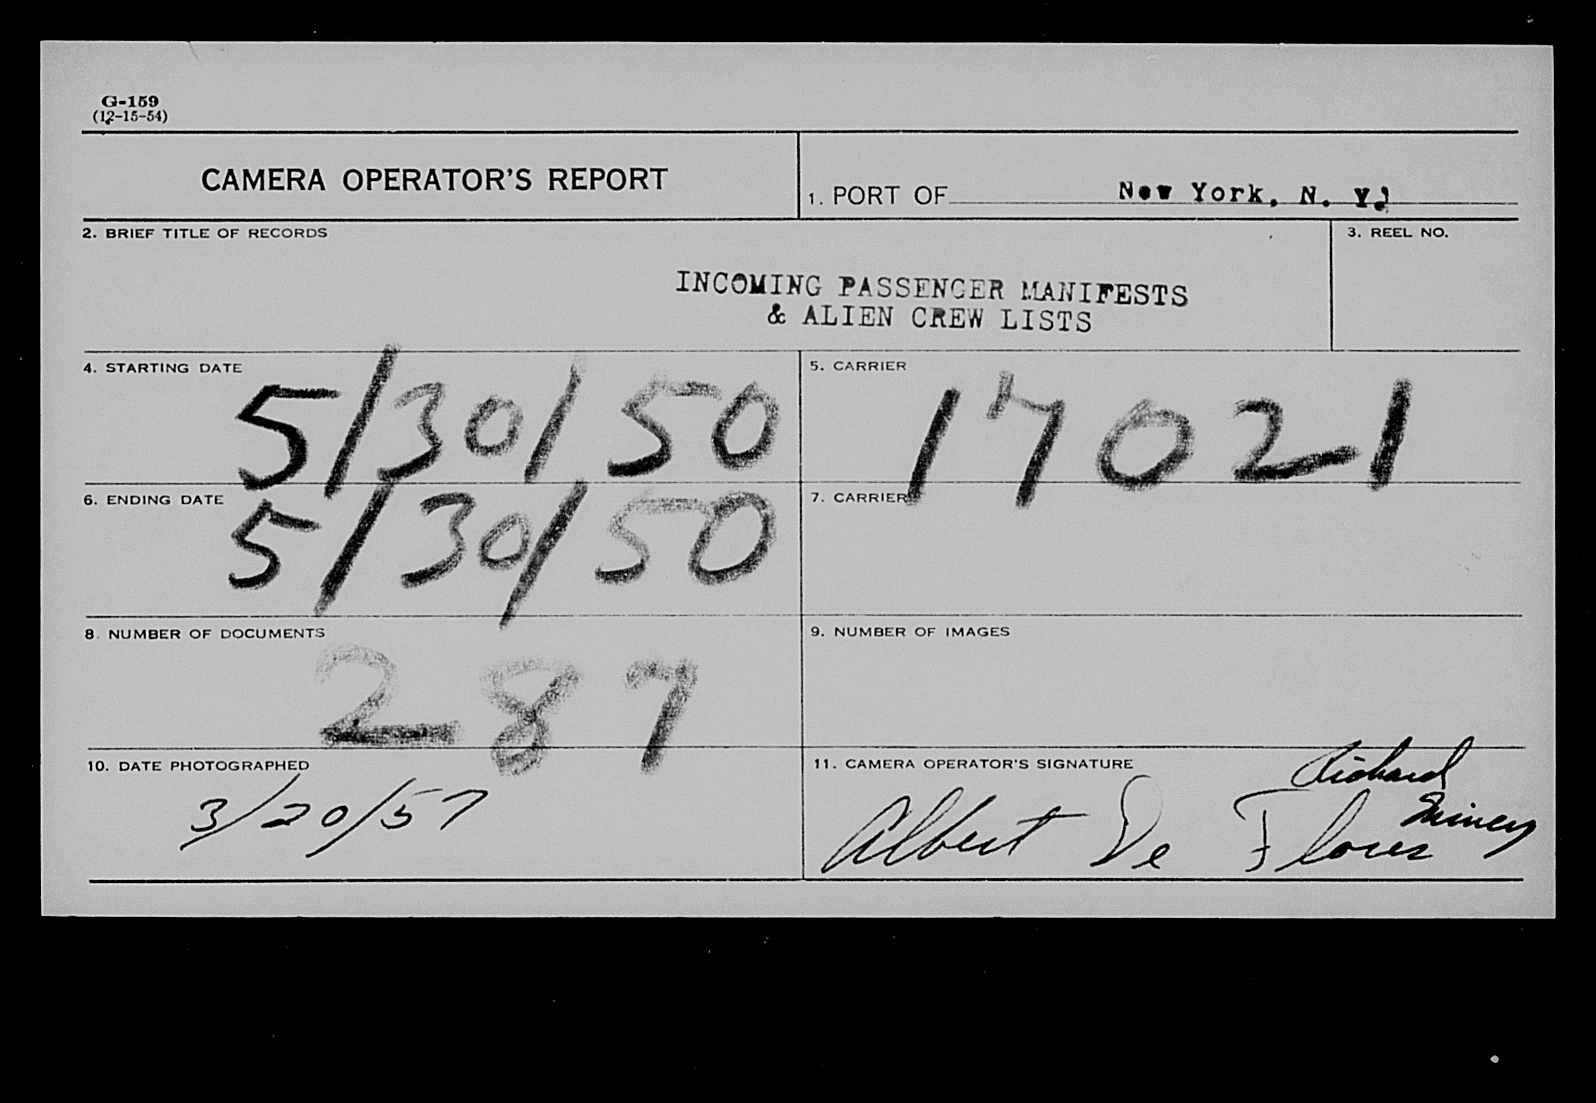 G-159
(12-15-54)
CAMERA OPERATOR'S REPORT
1. PORT OF New York, N. Y.
2. BRIEF TITLE OF RECORDS
3. REEL NO.
INCOMING PASSENGER MANIFESTS
& ALIEN CREW LISTS
4. STARTING DATE
5/30/50
5. CARRIER
17021
6. ENDING DATE
5/30/50
7. CARRIER
8. NUMBER OF DOCUMENTS
287
9. NUMBER OF IMAGES
10. DATE PHOTOGRAPHED
3/20/57
11. CAMERA OPERATOR'S SIGNATURE
Richard
Albert De Flores